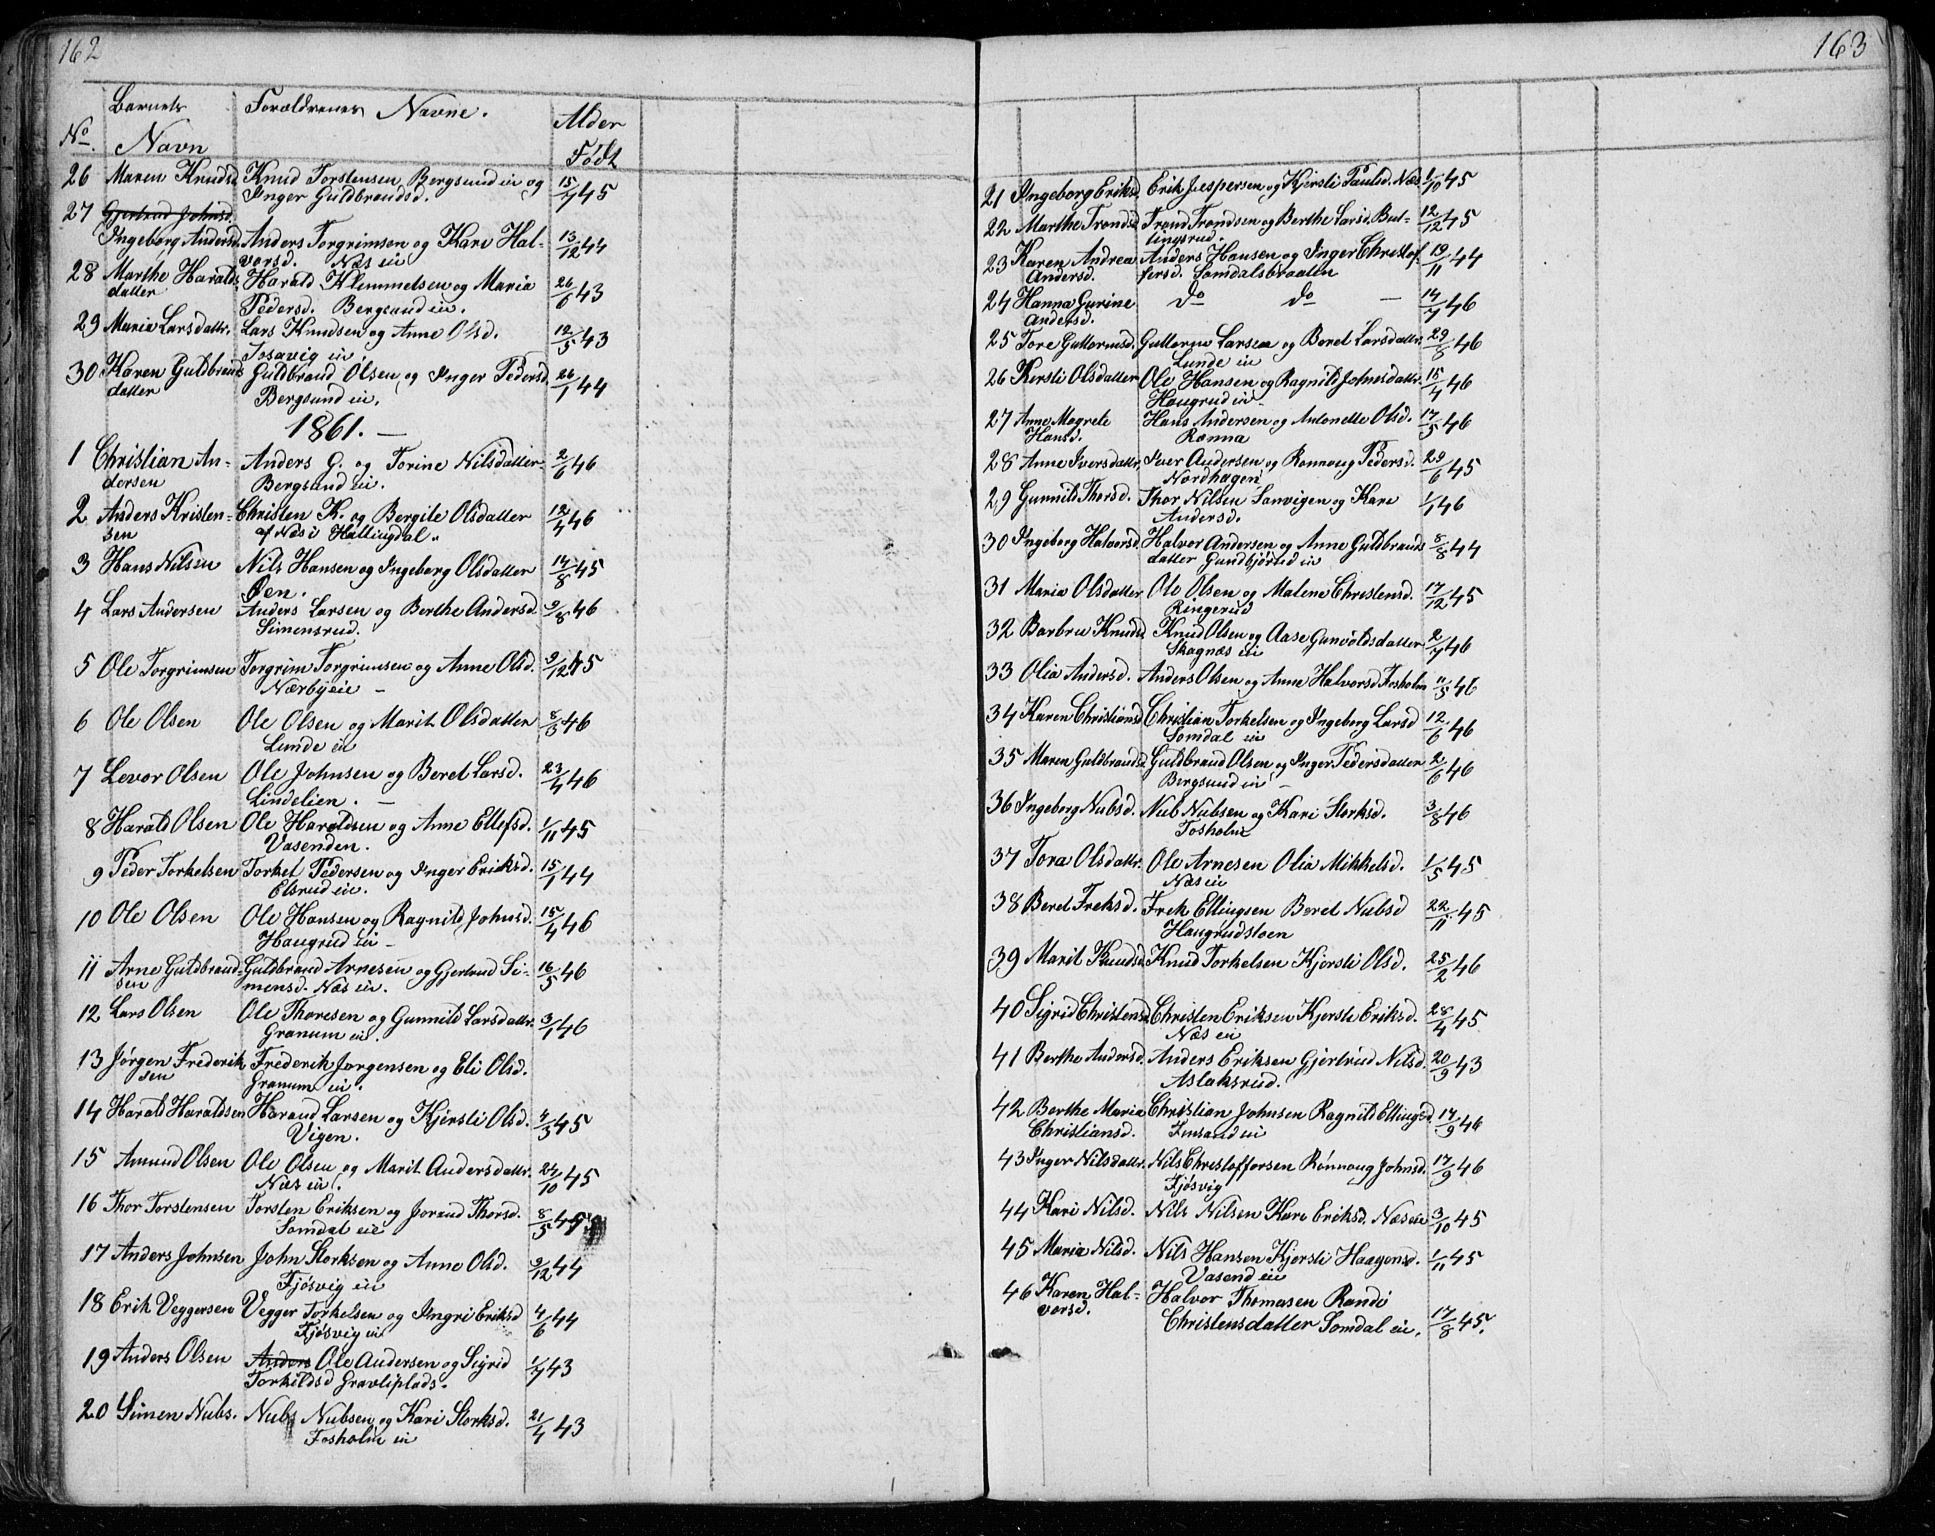 162
Barnets Forældrenes Navne. Alder
No. Navn Født
26 Maren Knudsd. Knud Torstensen Bergsund ei og 15/7 45
Inger Guldbrandsd.
27 Gjertrud Johnsd.
Ingeborg Andersd. Anders Torgrimsen og Kari Hal- 13/12 44
vorsd. Næs ei
28 Marthe Haralds Harald Klemmetsen og Maria 26/6 43
datter Pedersd. Bergsund ei.
29 Maria Larsdattr. Lars Knudsen og Anne Olsd. 12/5 43
Josavig ei.
30 Karen Guldbrands Guldbrand Olsen og Inger Pedersd. 26/1 44
datter Bergsund ei.
1861. —
1 Christian An- Anders G. og Torine Nilsdatter 2/6 46
dersen Bergsund ei.
2 Anders Kristen- Christen K. og Bergite Olsdatter 12/4 46
sen af Næs i Hallingdal.
3 Hans Nilsen Nils Hansen og Ingeborg Olsdatter 14/8 45
Øen.
4 Lars Andersen Anders Larsen og Berthe Andersd. 9/8 46
Simensrud.
5 Ole Torgrimsen Torgrim Torgrimsen og Anne Olsd. 9/12 45
Nærbyeie —
6 Ole Olsen Ole Olsen og Marit Olsdatter 8/3 46
Lunde ei
7 Levor Olsen Ole Johnsen og Beret Larsd. 23/4 46
Lindelien. —
8 Harald Olsen Ole Haraldsen og Anne Ellefsd. 1/11 45
Vasenden.
9 Peder Torkelsen Torkel Pedersen og Inger Eriksd. 15/1 44
Elsrud ei.
10 Ole Olsen Ole Hansen og Ragnild Johnsd. 15/4 46
Haugrud ei —
11 Arne Guldbrand- Guldbrand Arnesen og Gjertrud Si- 16/5 46
sen mensd. Næs ei.
12 Lars Olsen Ole Thoresen og Gunnild Larsdattr. 3/1 46
Granum ei.
13 Jørgen Frederik Frederik Jørgensen og Eli Olsd.
sen Granum ei.
14 Harald Haraldsen Harald Larsen og Kjersti Olsd. 4/3 45
Vigen.
15 Amund Olsen Ole Olsen og Marit Andersdattr. 24/10 45
Næs ei.
16 Thor Torstensen Torsten Eriksen og Jorand Thorsd. 8/5 45
Somdal eie
17 Anders Johnsen John Storksen og Anne Olsd. 9/12 44
Fjøsvig ei
18 Erik Veggersen Vegger Torkelsen og Ingri Eriksd 4/6 44
Fjøsvig ei
19 Anders Olsen Anders Ole Andersen og Sigrid 1/7 43
Torkildsd Gravliplads.
20 Simen Nubs. Nub Nubsen og Kari Storksd. 21/4 43
Fosholm ei
163
21 Ingeborg Eriksd. Erik Jespersen og Kjersti Paulsd. Næs. 1/10 45
22 Marthe Trondsd Trond Trondsen og Berthe Larsd. But- 12/12 45
lingsrud.
23 Karen Andrea Anders Hansen og Inger Christof- 19/11 44
Andersd. fersd. Somdalsbraaten
24 Hanna Gurine do do — 14/7 46
Andersd.
25 Tore Guttormsd. Guttorm Larsen og Beret Larsdattr. 29/8 46
Lunde ei
26 Kersti Olsdatter Ole Hansen og Ragnild Johnsdattr. 15/4 46
Haugrud ei —
27 Anne Magrete Hans Andersen og Antonette Olsd. 17/5 46
Hansd. Rønna
28 Anne Iversdattr. Iver Andersen og Ronnoug Pedersd. 29/6 45
Nordhagen
29 Gunnild Thorsd. Thor Nilsen Sanvigen og Kari 1/1 46
Andersd.
30 Ingeborg Halvorsd. Halvor Andersen og Anne Guldbrands 8/8 44
datter Gundbjørud ei
31 Maria Olsdatter Ole Olsen og Malene Christensd. 17/12 45
Ringerud
32 Barbru Knudsd. Knud Olsen og Aase Gunvoldsdatter 2/7 46
Skagnæs ei
33 Olia Andersd. Anders Olsen og Anne Halvorsd Fosholm 11/5 46
34 Karen Christiansd Christian Torkelsen og Ingeborg Larsd 12/6 46
Somdal ei
35 Maren Guldbrandsd. Guldbrand Olsen og Inger Pedersdatter 2/6 46
Bergsund ei —
36 Ingeborg Nubsd. Nub Nubsen og Kari Storksd. 3/8 46
Fosholm
37 Tora Olsdattr. Ole Arnesen Olia Mikkelsd. 1/5 45
Næs ei
38 Beret Freksd. Frek Ellingsen Beret Nubsd 22/11 45
Haugrudsloen
39 Marit Knudsd Knud Torkelsen Kjersti Olsd. 25/2 46
40 Sigrid Christensd. Christen Eriksen Kjersti Eriksd. 28/4 45
Næs ei
41 Berthe Andersd. Anders Eriksen Gjertrud Nilsd. 20/9 43
Aslaksrud.
42 Berthe Maria Christian Johnsen Ragnild Ellingsd. 14/9 46
Christiansd. Jmsand ei
43 Inger Nilsdattr. Nils Christoffersen Rønnoug Johnsd. 17/9 46
Fjøsvig
44 Kari Nilsd. Nils Nilsen Kari Eriksd. Næs ei 3/10 45
45 Maria Nilsd. Nils Hansen Kjersti Haagensd. 1/11 45
Vasend ei
46 Karen Hal- Halvor Thomasen Randi
vorsd. Christensdatter Somdal ei. 17/8 45.